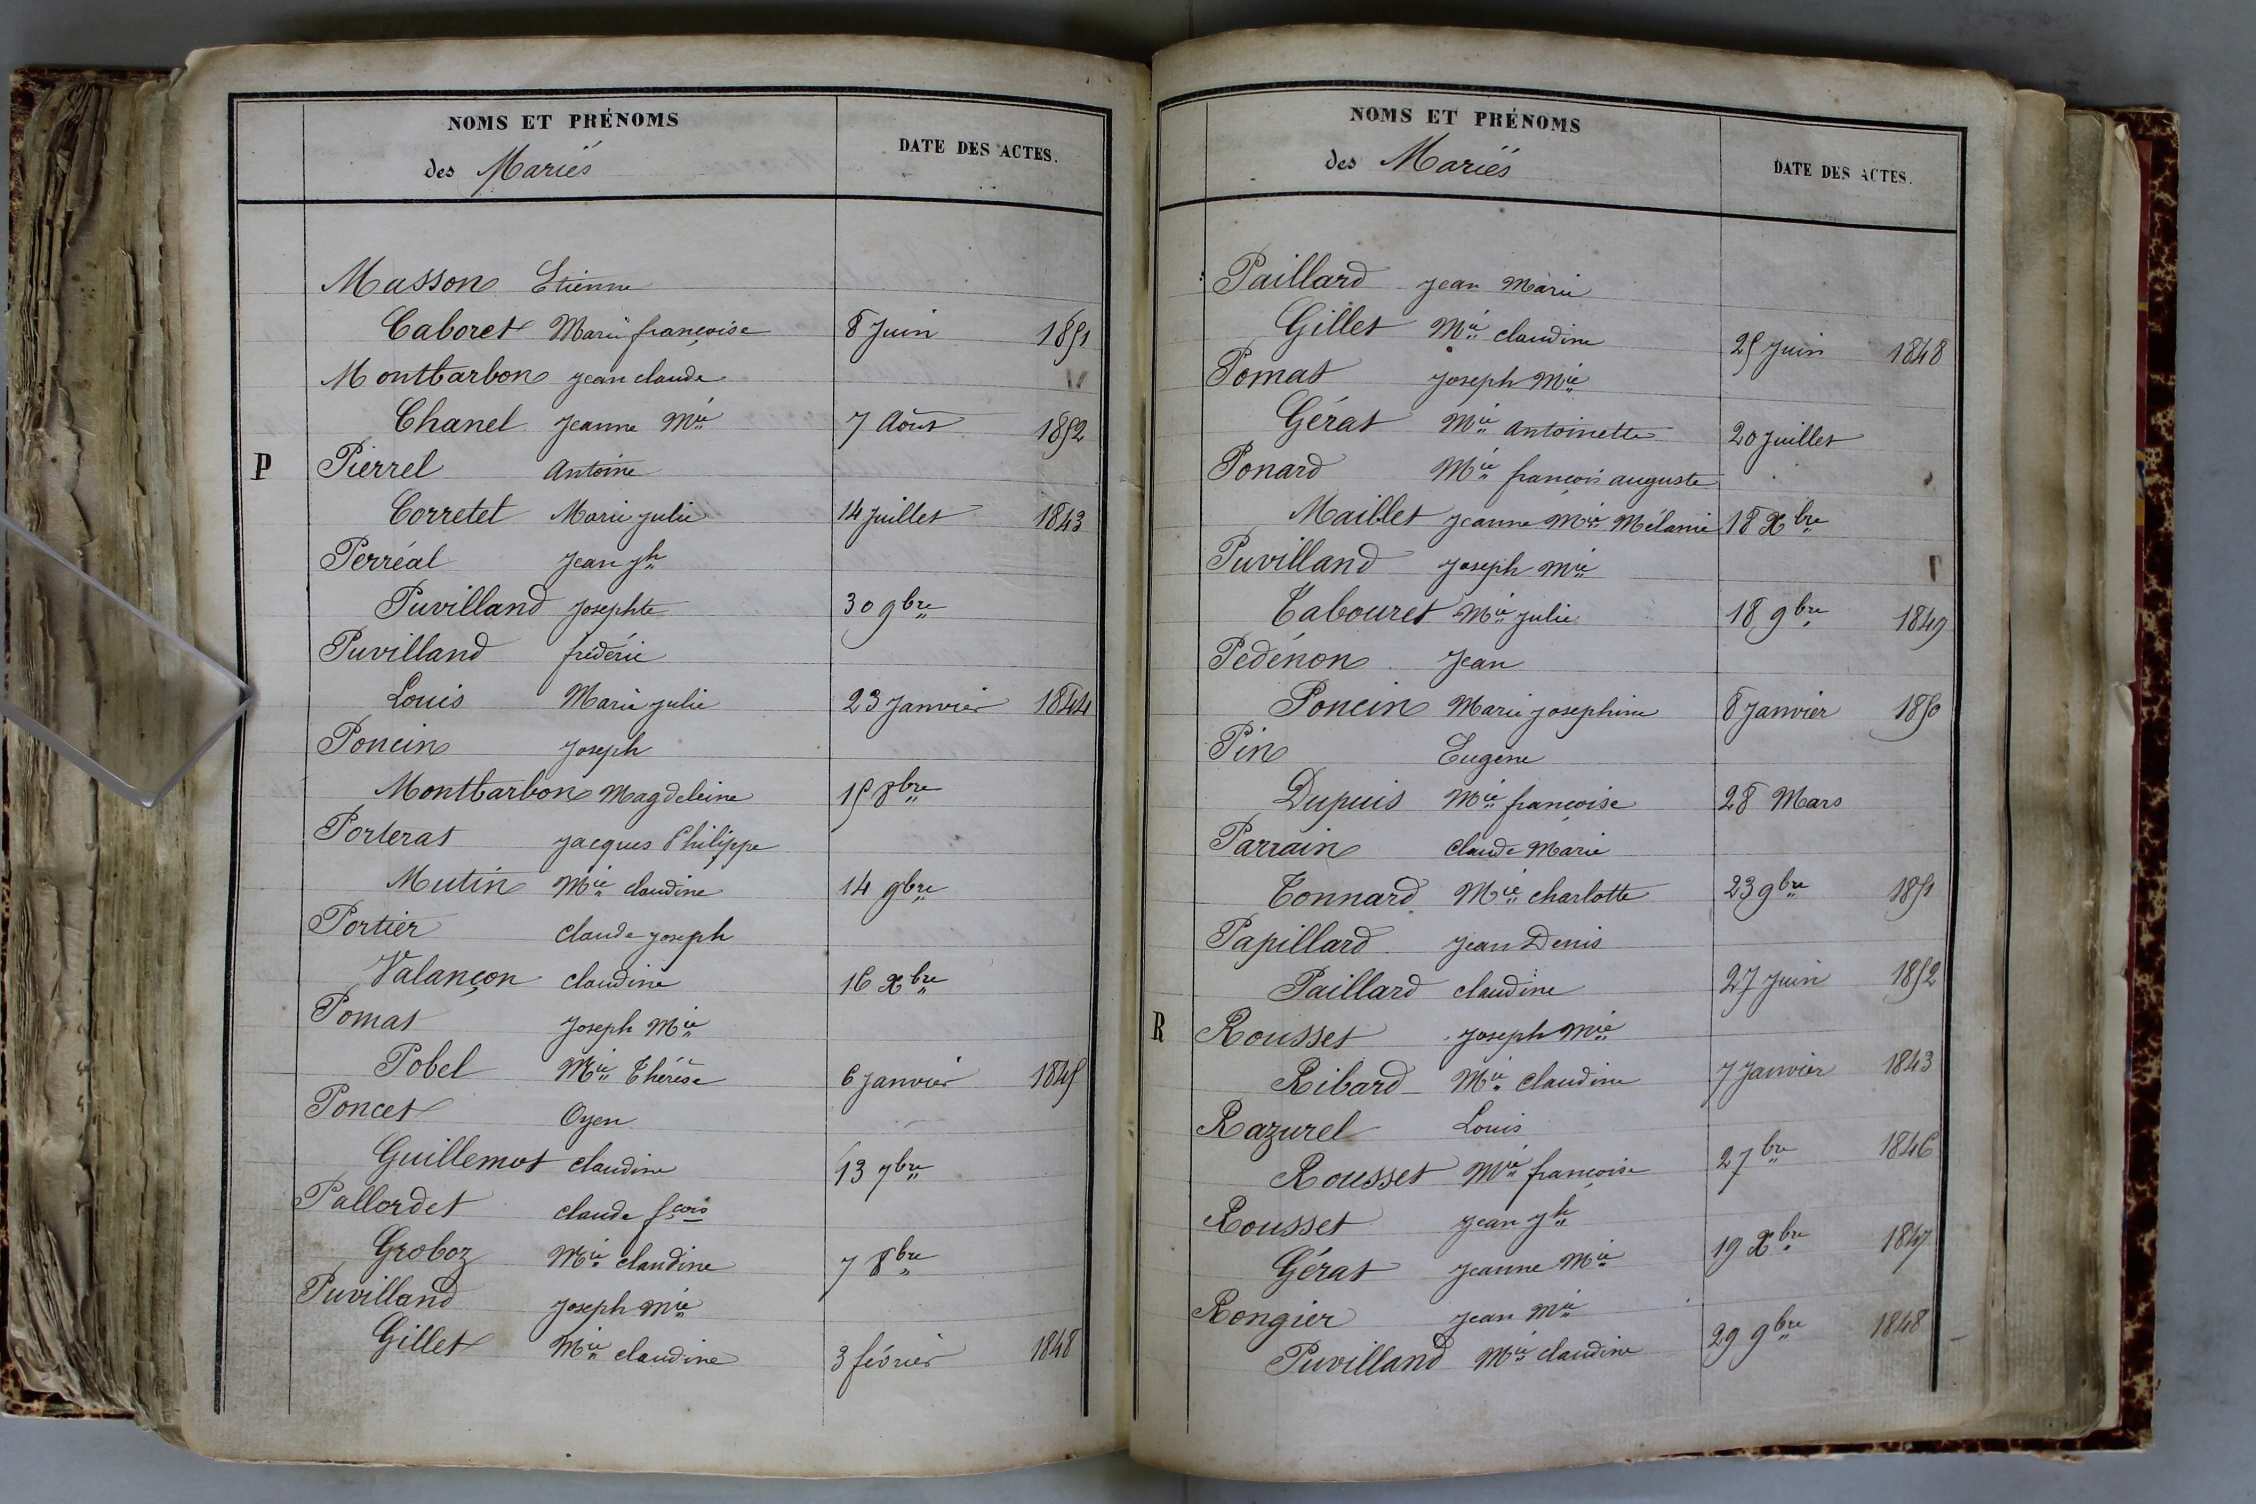 NOMS ET PRÉNOMS
des Mariés
DATE DES ACTES.
Masson Etienne
Taboret Marie françoise 8 Juin 1851
Montbarbon Jean claude
Chanel Jeanne Mie 7 Août 1852
P Pierrel Antoine
Corretel Marie julie 14 juillet 1843
Perréal Jean Jh
Puvilland Josephte 30 9bre
Puvilland frédéric
Louis Marie julie 23 Janvier 1844
Poncin Joseph
Montbarbon Magdeleine 15 8bre
Porterat Jacques Philippe
Mutin Mie claudine 14 9bre
Portier Claude Joseph
Valançon claudine 16 Xbre
Pomat Joseph Mie
Pobel Mie Thérèse 6 Janvier 1845
Poncet Oyen
Guillemot claudine 13 7bre
Pallordet claude fcois
Groboz Mie claudine 7 8bre
Puvilland Joseph Mie
Gillet Mie claudine 3 février 1848
NOMS ET PRÉNOMS
des Mariés
DATE DES ACTES.
Paillard Jean Marie
Gillet Mie claudine 25 Juin 1848
Pomat Joseph Mie
Gérat Mie Antoinette 20 Juillet
Ponard Mie françois auguste
Maillet Jeanne Mie Mélanie 18 Xbre
Puvilland Joseph Mie
Tabouret Mie Julie 18 9bre 1849
Pedénon Jean
Poncin Marie Josephine 8 Janvier 1850
Pin Eugene
Dupuis Mie françoise 28 Mars
Parrain Claude Marie
Tonnard Mie charlotte 23 9bre 1851
Papillard Jean Denis
Paillard claudine 27 Juin 1852
R Rousset Joseph Mie
Ribard Mie claudine 7 Janvier 1843
Razurel Louis
Rousset Mie françoise 27bre 1846
Rousset Jean Jh
Gérat Jeanne Mie 19 Xbre 1847
Rongier Jean Mie
Puvilland Mie claudine 29 9bre 1848